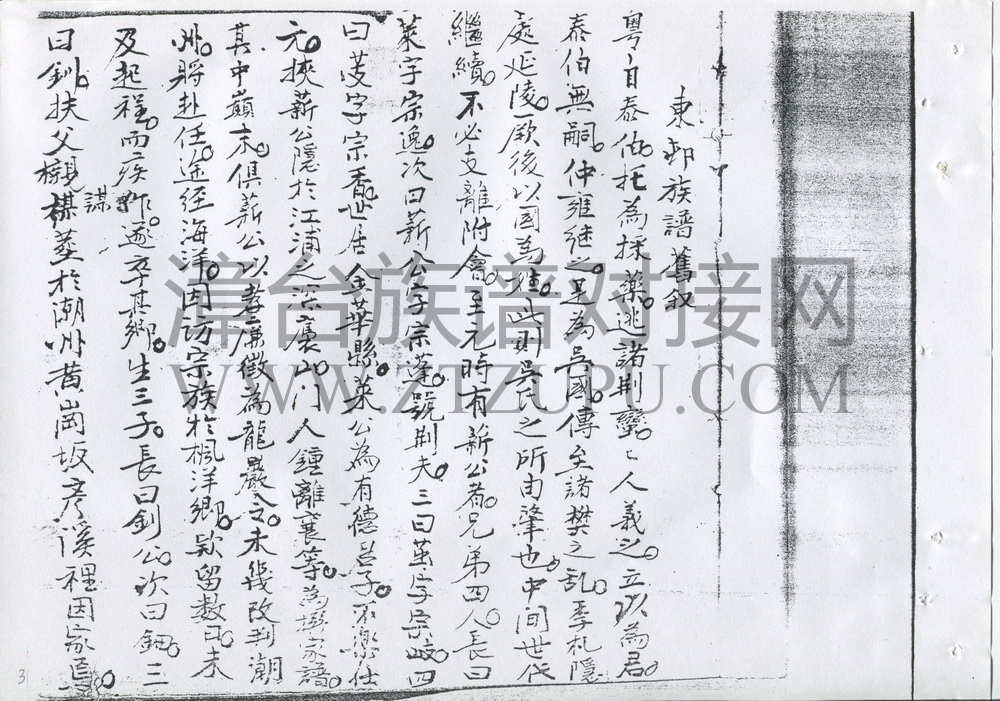 東邨族譜舊叙
粤自泰伯托為採藥逃諸荆蠻〻人義之立以為君
泰伯無嗣仲雍継之是為吳國傳矣諸樊之乱季札隱
處延陵厥後以國為姓此則吳氏之所由肇也中间世代
繼續不必支離附會至元時有薪公者兄弟四人長曰
萊字宗逸次曰薪公字宗蓬號荆夫三曰茁字宗岐四
曰芟字宗香世居金華縣萊公為有德君子不樂仕
元挾薪公隱於江浦之深裏山门人鍾離襄等為撰家語
其中巔末俱薪公以孝廉徵為龍巖令未幾改判潮
州將赴任途經海洋因訪宗族於楓洋鄉欵留数日未
及起程而疾作遂卒其鄉生三子長曰釗公次曰鈿三
謀
曰釧扶父櫬葬於潮州黄崗坂彦溪裡因家焉
津台族谱对接网
WWW.ZTZUPU.COM
3